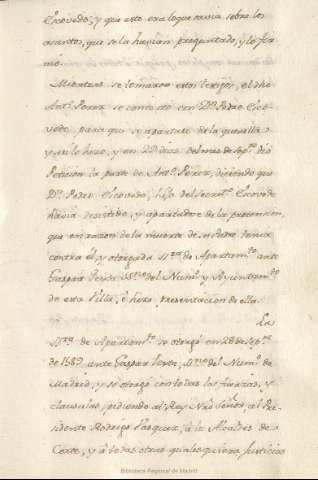 Escovedo; y que esto era lo que savia sobre los
asuntos, que se la havian preguntado, y lo fir-
mó.
Mientras se tomaron estos textigos, el dho
Antº. Perez se concertó con Dn. Pedro Esco-
vedo, para que se apartase de la querella:
y asi lo hizo, y en 29 dias del mes de Sepre. dió
Peticion la parte de Antº. Perez, diciendo que
Dn. Pedro Escovedo, hijo del Secretº. Escovedo
havia desistido, y apartadose de la pretension,
que en razon de la muerte de su Padre tenia
contra él, y otorgada ssra. de Apartamto. ante
Gaspar Testa ssno. del Numº. y Ayuntamto.
de esta Villa, é hizo presentacion de ella.
La
ssra. de Apartamto. se otorgó en 28 de Sepre.
de 1589 ante Gaspar Testa, ssno. del Numº. de
Madrid, y se otorgó con todas las fuerzas, y
clausulas, pidiendo al Rey Nro. Señor, al Pre-
sidente Rodrigo Vazquez, á los Alcaldes de
Corte, y á todas otras qualesquiera Justicias
Biblioteca Regional de Madrid